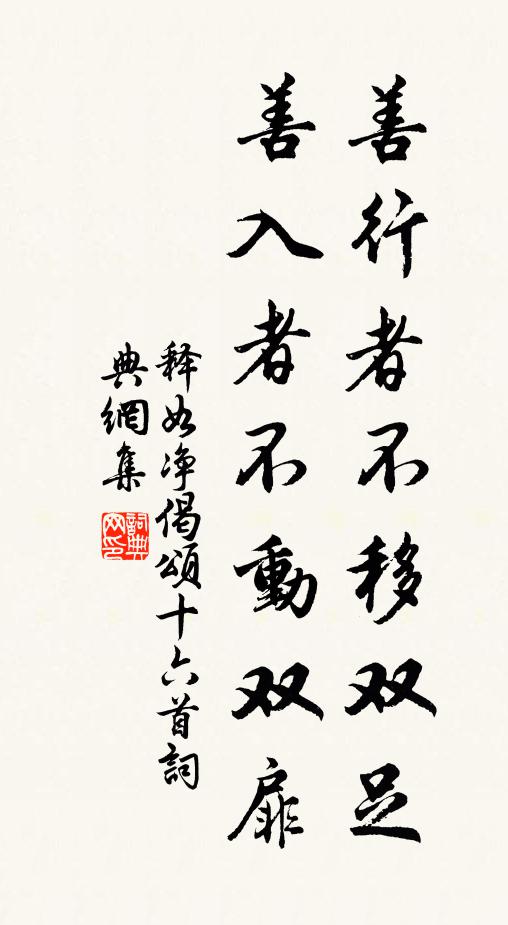 善行者不移双足
善入者不動双扉
释如净偈頌十六首詞
典網集
詞典网印